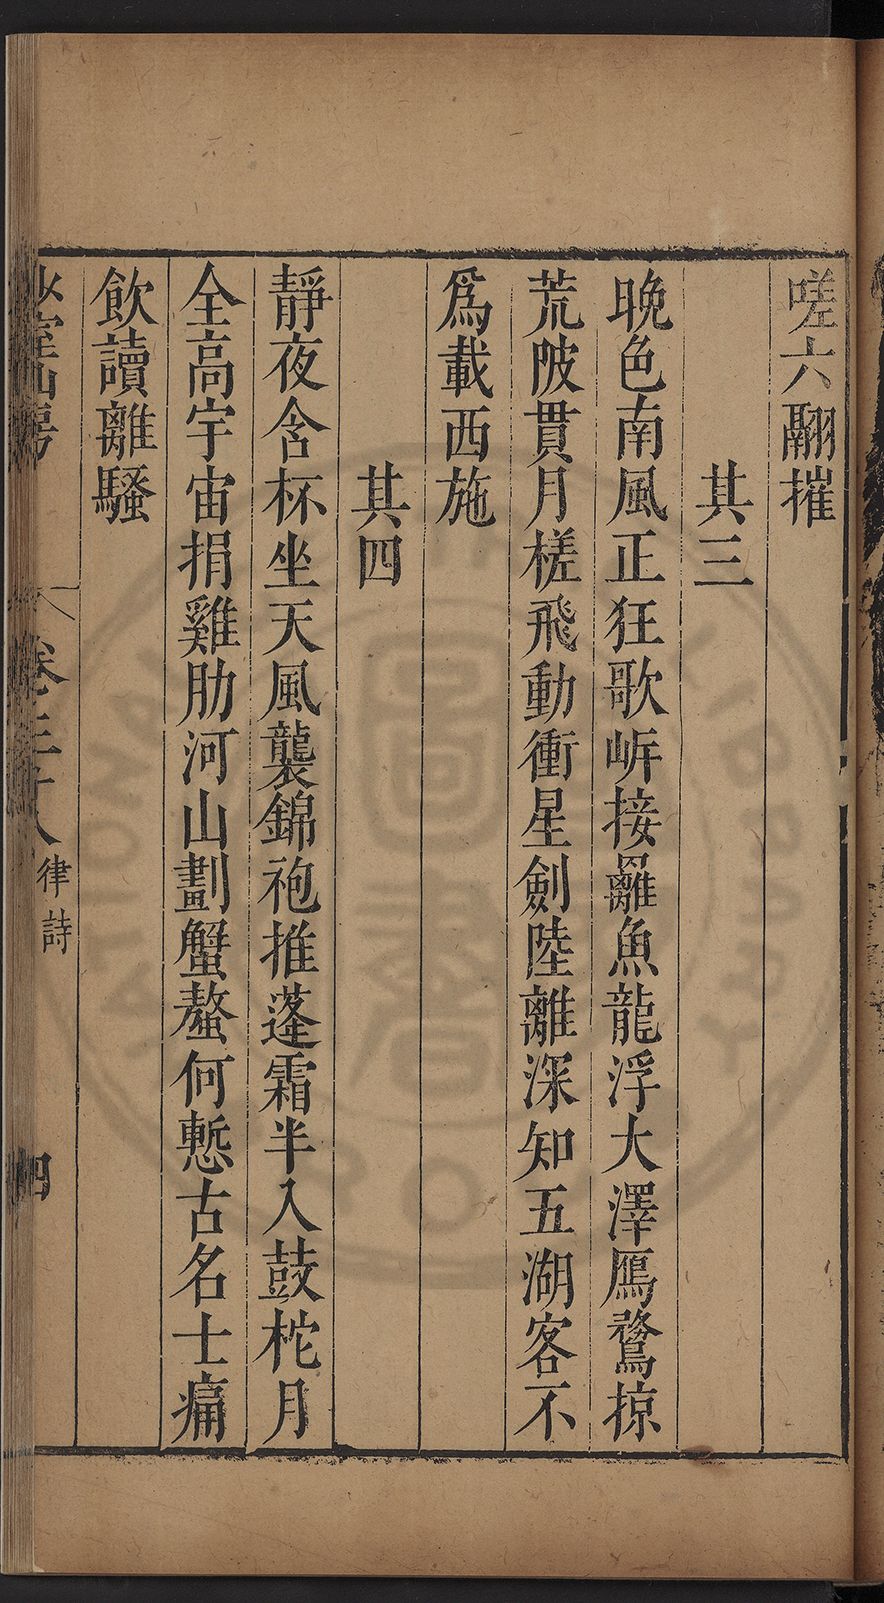 嗟六翮摧
其三
晚色南風正狂歌㟁接䍦魚龍浮大澤鴈鶩掠
荒陂貫月槎飛動衝星劍陸離深知五湖客不
爲載西施
其四
靜夜含杯坐天風襲錦袍推蓬霜半入鼓柁月
全高宇宙捐雞肋河山劃蟹螯何慙古名士痛
飲讀離騷
卷三十八 律詩 四